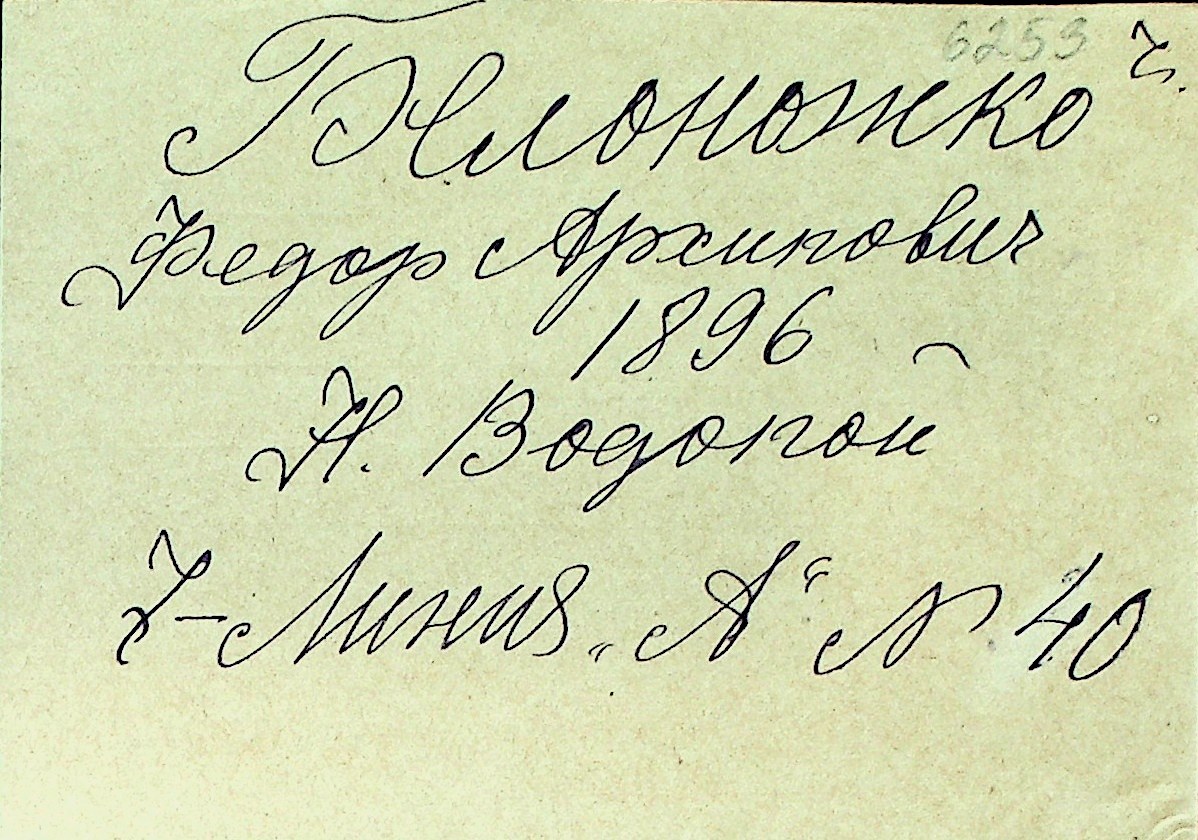 6253 ч.
Білоножко
Федор Архипович
1896
Н. Водопой
7-Линия „А“ № 40